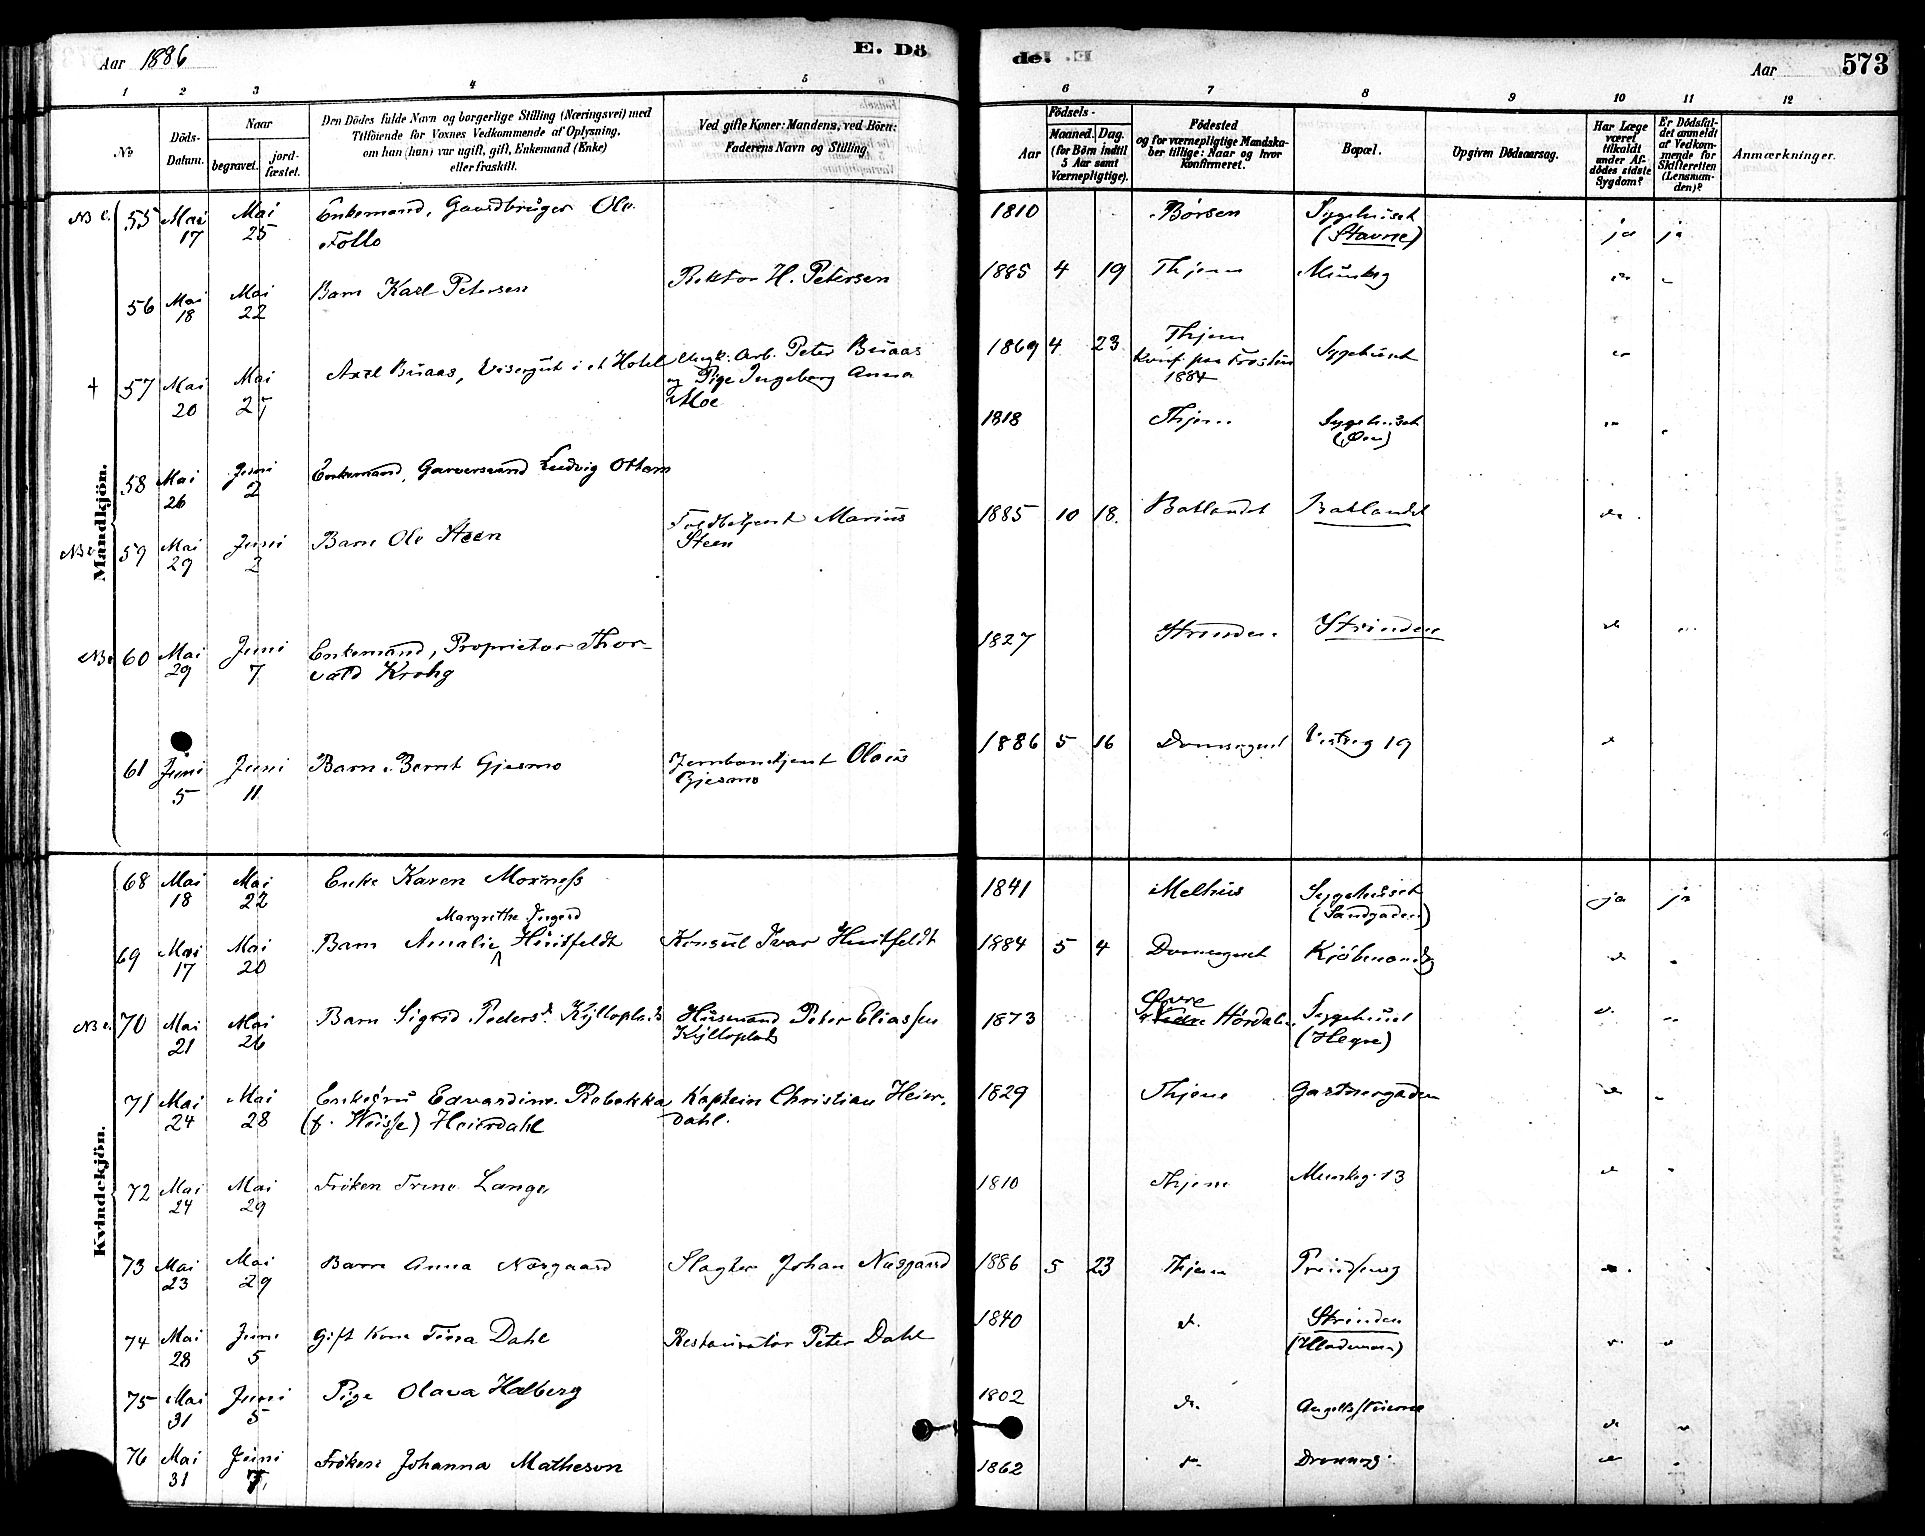 Aar 1886
E. Dö
de. E.
Aar 573
1 2 3 4 5 6 7 8 9 10 11 12
No
Döds-Datum.
Naar
begravet.
jordfæstet.
Den Dödes fulde Navn og borgerlige Stilling (Næringsvei) med
Tilföiende for Voxnes Vedkommende af Oplysning,
om han (hun) var ugift, gift, Enkemand (Enke)
eller fraskilt.
Ved gifte Koner: Mandens, ved Börn:
Faderens Navn og Stilling.
Födsels-
Aar
Maaned.
Dag.
(for Børn indtil
5 Aar samt
Værnepligtige).
Födested
og for værnepligtige Mandskaber tillige: Naar og hvor
konfirmeret.
Bopæl.
Opgiven Dödsaarsag.
Har Læge
været
tilkaldt
under Afdödes sidste
Sygdom?
Er Dödsfaldet anmeldt
af Vedkommende for
Skifteretten
(Lensmanden)?
Anmærkninger.
Mandkjön.
55 Mai 17 Mai 25 Enkemand, Gaardbruger Ole Follo 1810 Börsen Sygehuset (Stavne) ja ja
56 Mai 18 Mai 22 Barn Karl Petersen Rektor H. Petersen 1885 4 19 Thjem Munkeg
57 Mai 20 Mai 27 Axel Buaas, Visergut i et Hotel Arb. Peter Buaas og Pige Ingeborg Anna Moe 1869 4 23 Thjem Konf. paa Frosten 1884 Sygehuset
58 Mai 26 Juni 2 Enkemand, Garversvend Ludvig Ottem 1818 Thjem Sygehuset (Øen)
59 Mai 29 Juni 2 Barn Ole Steen Toldbetjent Marius Steen 1885 10 18. Baklandet Baklandet do.
60 Mai 29 Juni 7 Enkemand, Proprietor Thorvald Krohg 1827 Strinden Strinden
61 Juni 5 Juni 11 Barn Bernt Gjesmo Jernbanetjent Olaus Gjesmo 1886 5 16 Domsognet 19
Kvindekjön.
68 Mai 18 Mai 22 Enke Karen Moxness 1841 Melhus Sygehuset (Sandgaden) ja ja
69 Mai 17 Mai 20 Barn Amalie Margrethe Ingerd Huitfeldt Konsul Ivar Huitfeldt 1884 5 4 Domsognet
70 Mai 21 Mai 26 Barn Sigrid Pedersd. Kylloplads Husmand Peter Eliassen Kylloplads 1873 Øvre Stjørdalen Sygehuset (Hegre)
71 Mai 24 Mai 28 Enkefru Edvardine Rebekka (f. Weisse) Heierdahl Kaptein Christian Heierdahl. 1829 Thjem Gartnergaden
72 Mai 24 Mai 29 Frøken Trine Lange 1810 Thjem Munkeg. 13
73 Mai 23 Mai 29 Barn Anna Næsgaard Slagter Johan Næsgaard 1886 5 23 Thjem
74 Mai 28 Juni 5 Gift Kone Tina Dahl Restauratør Peter Dahl 1840 Strinden
75 Mai 31 Juni 5 Pige Olava Halberg 1802 do.
76 Mai 31 Juni 7 Frøken Johanna Matheson 1862 Dronng.